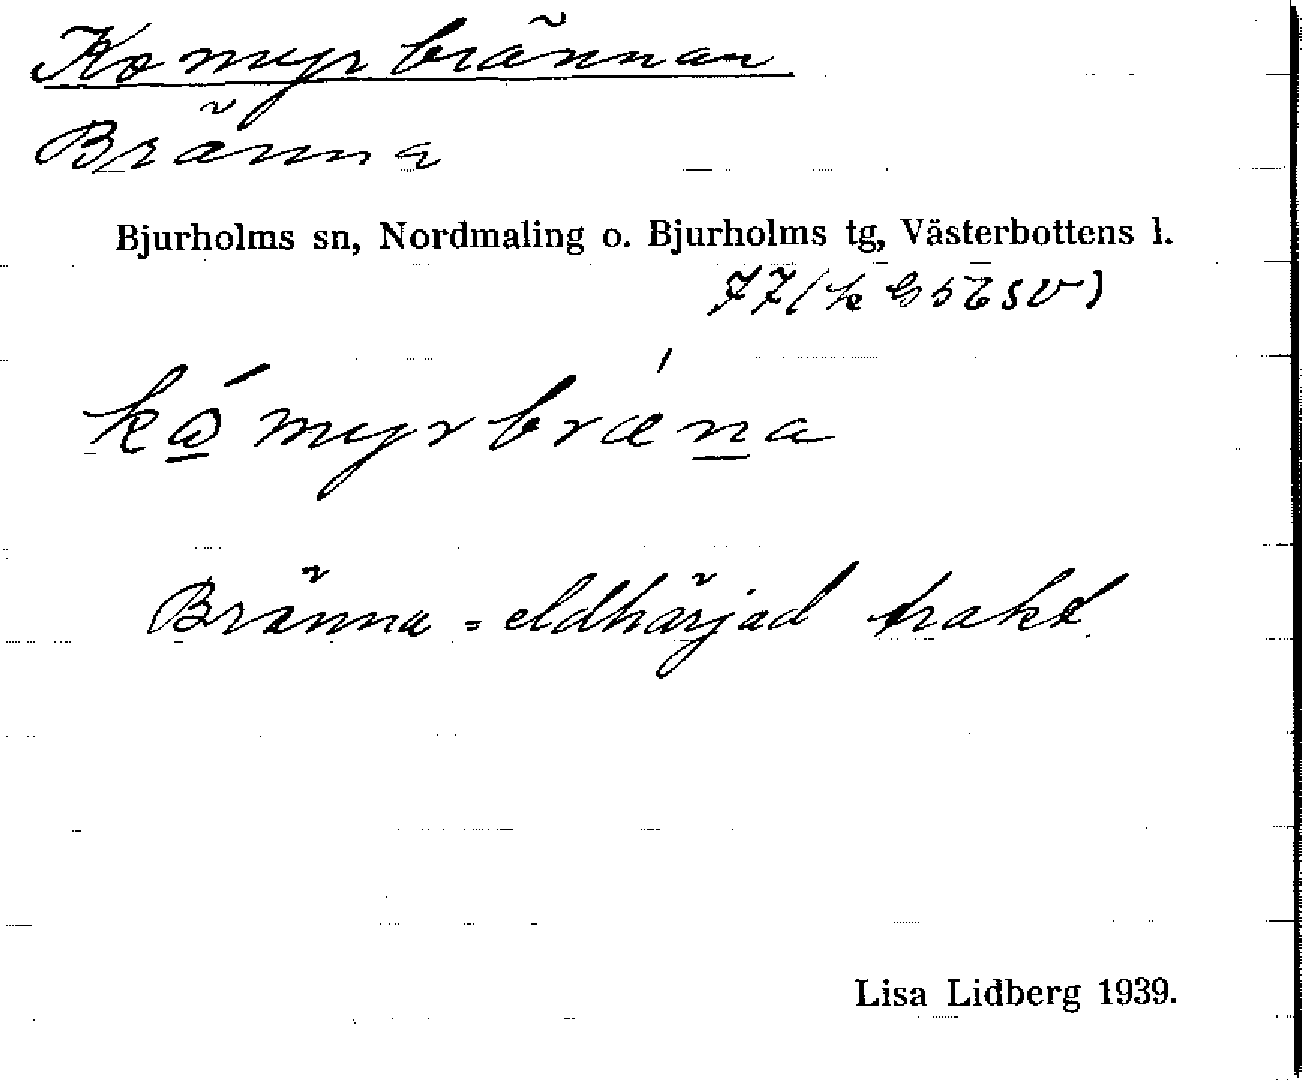 Komyrbrännan
Bränna
Bjurholms sn, Nordmaling o. Bjurholms tg, Västerbottens l.
kó̲myrbræ'n̲a
Bränna = eldhärjad trakt.
Lisa Lidberg 1939.